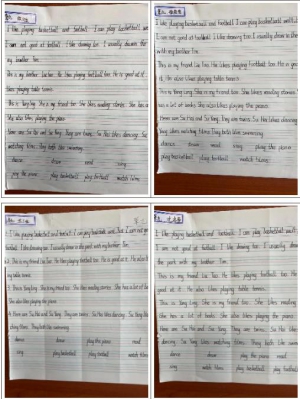 I like playing basketball and football. I can play basketball well
I am not good at football. I like drawing too. I usually draw in the
my brother Tim.
This is my brother Liu Tao. He likes playing football too. He is good at it. He
likes playing table tennis.
This is Yang Ling. She is my friend too. She likes reading stories. She has a
She also likes playing the piano.
Here are Su Hai and Su Yang. They are twins. Su Hai likes dancing. Su
watching films. They both like swimming.
dance draw read sing
play the piano play basketball play football watch films
I like playing basketball and football. I can play basketball well
I am not good at football. I like drawing too. I usually draw in the
with my brother Tim.
This is my friend Liu Tao. He likes playing football too. He is good
it. He also likes playing table tennis.
This is Yang Ling. She is my friend too. She likes reading stories.
has a lot of books. She also likes playing the piano.
Here are Su Hai and Su Yang. They are twins. Su Hai likes dancing
Yang likes watching films. They both like swimming.
dance draw read sing play the piano
play basketball play football watch films
1. I like playing basketball and football. I can play basketball well. I am not good
football. I like drawing too. I usually draw in the park with my brother Tim.
2. This is my friend Liu Tao. He likes playing football too. He is good at it. He also
table tennis.
3. This is Yang Ling. She is my friend too. She likes reading stories. She has a lot of
She also likes playing the piano.
4. Here are Su Hai and Su Yang. They are twins. Su Hai likes dancing. Su Yang likes
films. They both like swimming.
dance draw play the piano read
sing play basketball play football watch films
I like playing basketball and football. I can play basketball well
I am not good at football. I like drawing too. I usually draw in
the park with my brother Tim.
This is my friend Liu Tao. He likes playing football too. He is
good at it. He also likes playing table tennis.
This is Yang Ling. She is my friend too. She likes reading
She has a lot of books. She also likes playing the piano.
Here are Su Hai and Su Yang. They are twins. Su Hai likes
dancing. Su Yang likes watching films. They both like swimming
dance draw play the piano read
sing play basketball play football watch films